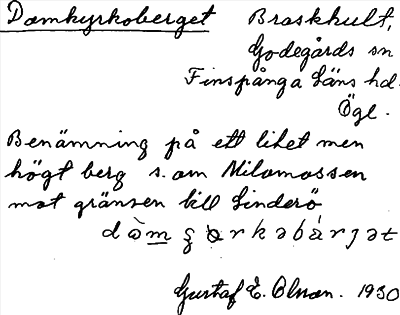 Domkyrkoberget Braskhult,
Godegårds sn
Finspånga läns hd.
Ögl.
Benämning på ett litet men
högt berg s. om Milamossen
mot gränsen till Sinderö
Gustaf E. Olsson. 1930